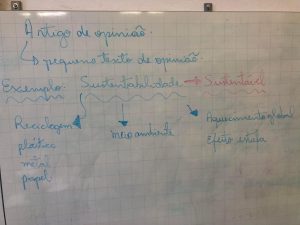 Artigo de opinião.
↳ pequeno texto de opinião.
Exemplo: Sustentabilidade → Sustentável
Reciclagem
plástico
metal
papel
meio ambiente
Aquecimento global
Efeito estufa